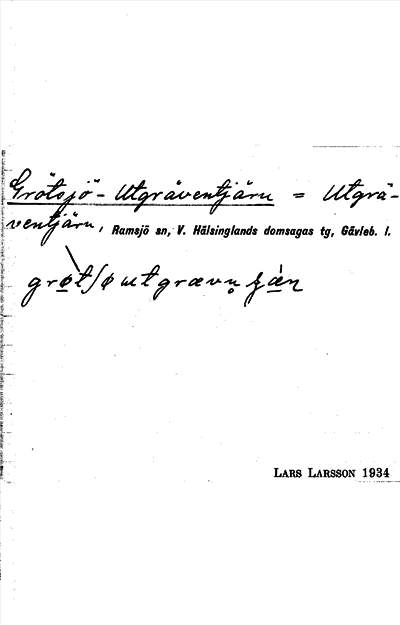 Grötsjö-Utgräventjärn = Utgrä-
ventjärn, Ramsjö sn, V. Hälsinglands domsagas tg, Gävleb. l.
LARS LARSSON 1934